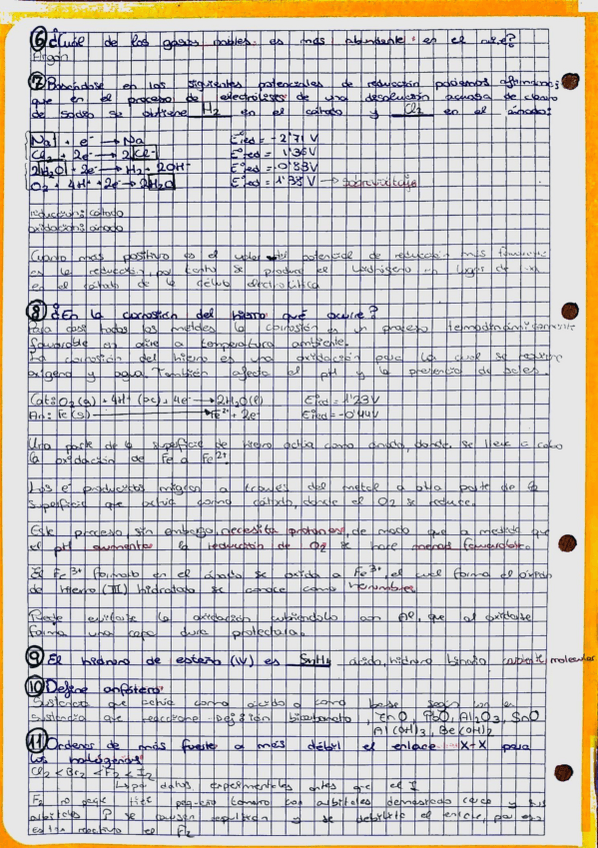 ⑥ ¿Cuál de los gases nobles es más abundante en el aire?
Argón
⑦ Basándose en los siguientes potenciales de reducción podemos afirmar
que en el proceso de electrólisis de una disolución acuosa de cloruro
de sodio se obtiene H2 en el cátodo y Cl2 en el ánodo:
Na+ + e- → Na E°red = -2'71 V
Cl2 + 2e- → 2Cl- E°red = 1'36V
2H2O + 2e- → H2 + 2OH- E°red = -0'83V
O2 + 4H+ + 2e- → 2H2O E°red = 1'38V → sobrevoltaje
reducción: cátodo
oxidación: ánodo
Cuanto más positivo es el valor del potencial de reducción más favorable
es la reducción, por tanto se produce el hidrógeno en lugar de
en el cátodo de la célula electrolítica
⑧ ¿En la corrosión del hierro qué ocurre?
Para casi todos los metales la corrosión es un proceso termodinámicamente
favorable en aire a temperatura ambiente.
La corrosión del hierro es una oxidación para la cual se requiere
oxígeno y agua. También afecta el pH y la presencia de sales.
Cat: O2(g) + 4H+ (ac) + 4e- → 2H2O(l) E°red = 1'23V
An: Fe(s) → Fe2+ + 2e- E°red = -0'44V
Una parte de la superficie de hierro actúa como ánodo, donde se lleva a cabo
la oxidación de Fe a Fe2+.
Los e- producidos migran a través del metal a otra parte de la
superficie que actúa como cátodo, donde el O2 se reduce.
Este proceso, sin embargo, necesita protones, de modo que a medida que
el pH aumenta la reducción de O2 se hace menos favorable.
El Fe2+ formado en el ánodo se oxida a Fe3+, el cual forma el óxido
de hierro (III) hidratado se conoce como herrumbre
Puede evitarse la oxidación cubriéndolo con Al, que al oxidarse
forma una capa dura protectora.
⑨ El hidruro de estaño (IV) es SnH4 ácido, hidruro binario molecular
⑩ Define anfótero
Sustancia que actúa como ácido o como base según con la
sustancia que reaccione bicarbonato, ZnO, PbO, Al2O3, SnO
Al(OH)3, Be(OH)2
⑪ Ordenes de más fuerte a más débil el enlace X-X para
los halógenos
Cl2 < Br2 < F2 < I2
datos experimentales antes que el I
F2 pequeño tamaño con orbitales demasiado cerca y sus
orbitales P se causan repulsión y se debilita el enlace, por eso
es tan reactivo el F2